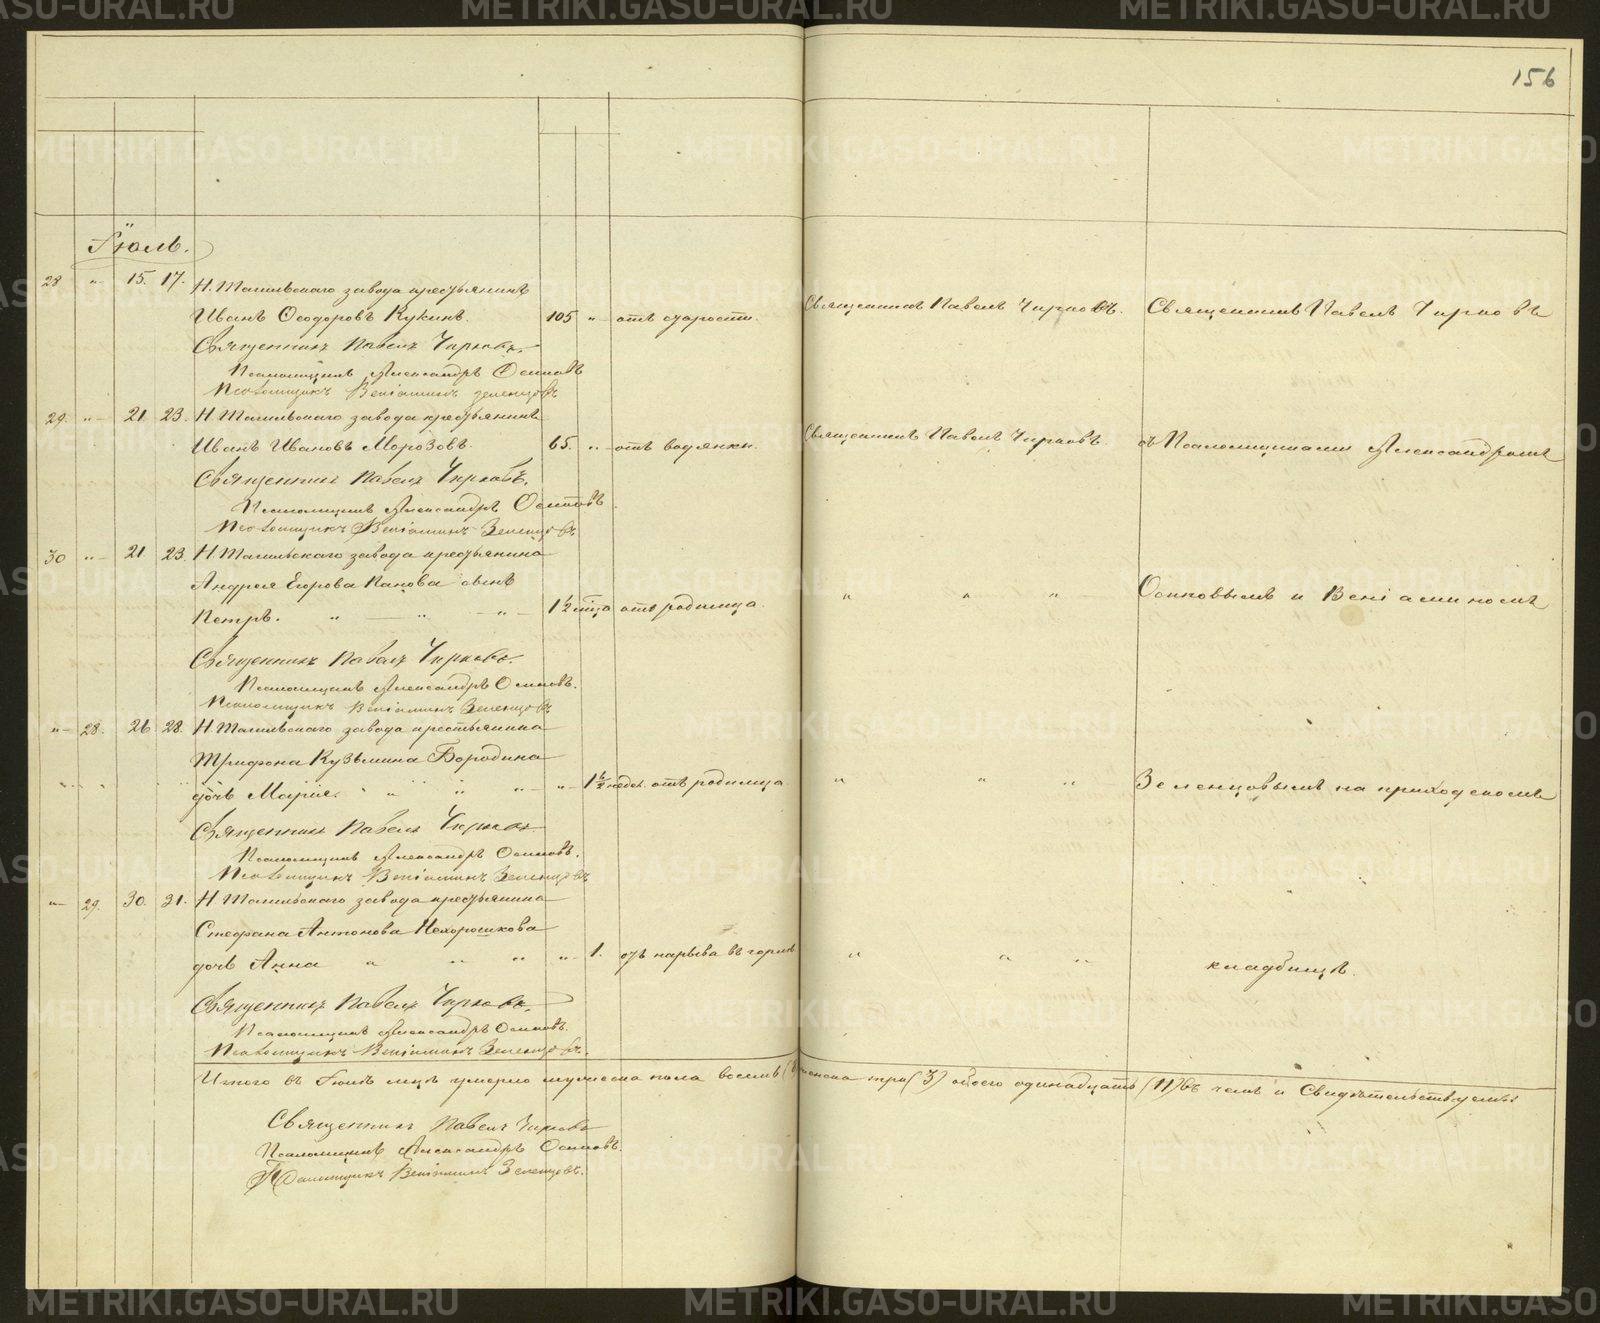 156
Іюль.
28 " 15. 17. Н. Тагильскаго завода крестьянинъ
Иванъ Ѳеодоровъ Кукинъ. 105 " отъ старости. Священникъ Павелъ Чирковъ. Священникъ Павелъ Чирковъ
Священникъ Павелъ Чирковъ.
Псаломщикъ Александръ Осиповъ
Псаломщикъ Веніаминъ Зеленцовъ
29. " 21 23. Н. Тагильскаго завода крестьянинъ
Иванъ Ивановъ Морозовъ. 65. " отъ водянки. Священникъ Павелъ Чирковъ. съ Псаломщиками Александромъ
Священникъ Павелъ Чирковъ.
Псаломщикъ Александръ Осиповъ
Псаломщикъ Веніаминъ Зеленцовъ
30 " 21 23. Н. Тагильскаго завода крестьянина
Андрея Егорова Панова сынъ
Петръ. " " " 1½ м̃ца отъ родимца. " " " Осиповымъ и Веніаминомъ
Священникъ Павелъ Чирковъ.
Псаломщикъ Александръ Осиповъ.
Псаломщикъ Веніаминъ Зеленцовъ
" 28. 26. 28. Н. Тагильскаго завода крестьянина
Трифона Кузьмина Бородина
дочь Марія. " " " " " 1½ недел. отъ родимца " " " Зеленцовымъ на приходскомъ
Священникъ Павелъ Чирковъ
Псаломщикъ Александръ Осиповъ.
Псаломщикъ Веніаминъ Зеленцовъ
" 29. 30. 31. Н. Тагильскаго завода крестьянина
Стефана Антонова Нехорошкова
дочь Анна " " " " 1. отъ нарыва въ горлѣ " " " кладбищѣ.
Священникъ Павелъ Чирковъ.
Псаломщикъ Александръ Осиповъ.
Псаломщикъ Веніаминъ Зеленцовъ.
Итого въ Іюлѣ мцѣ умерло мужеска пола восемь (8) женска три (3) обоего одинадцать (11) въ чемъ и Свидѣтельствуемъ
Священникъ Павелъ Чирковъ
Псаломщикъ Александръ Осиповъ.
Псаломщикъ Веніаминъ Зеленцовъ.
METRIKI.GASO-URAL.RU